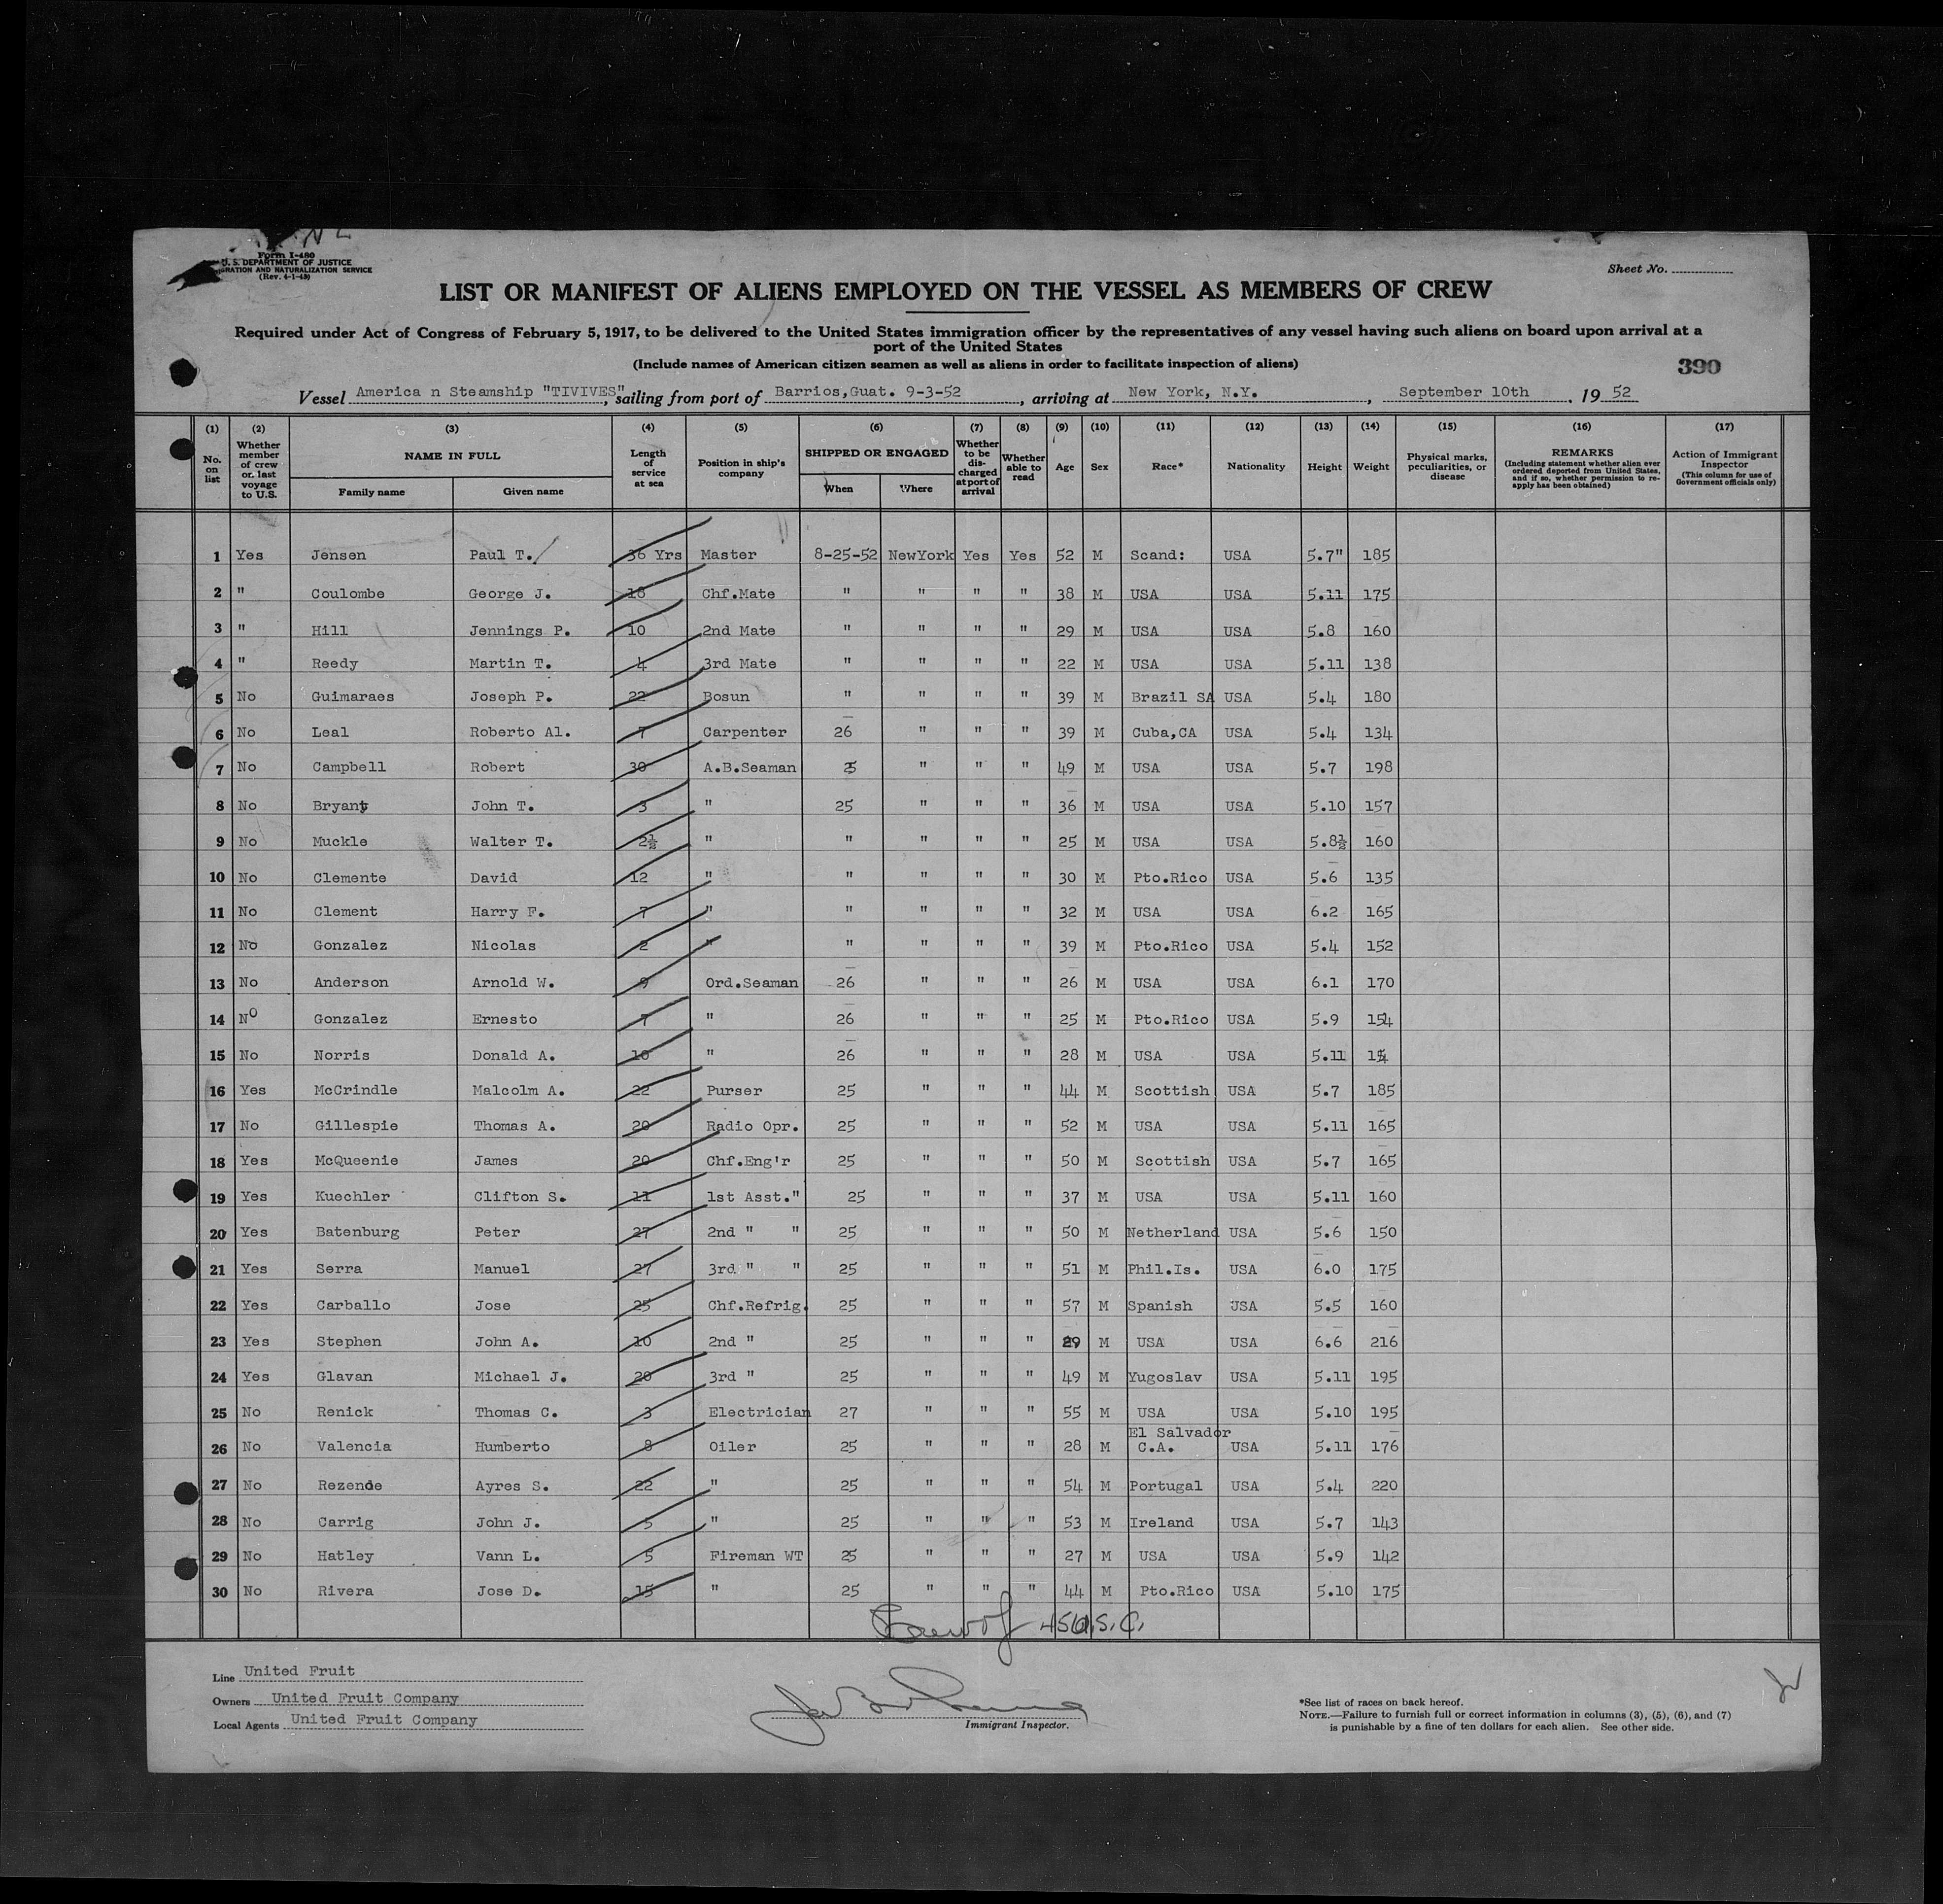 Form I-480
U. S. DEPARTMENT OF JUSTICE
RATION AND NATURALIZATION SERVICE
(Rev. 4-1-45)
Sheet No.
LIST OR MANIFEST OF ALIENS EMPLOYED ON THE VESSEL AS MEMBERS OF CREW
Required under Act of Congress of February 5, 1917, to be delivered to the United States immigration officer by the representatives of any vessel having such aliens on board upon arrival at a
port of the United States
(Include names of American citizen seamen as well as aliens in order to facilitate inspection of aliens)
390
Vessel America n Steamship "TIVIVES", sailing from port of Barrios,Guat. 9-3-52, arriving at New York, N.Y., September 10th, 19 52
(1) (2) (3) (4) (5) (6) (7) (8) (9) (10) (11) (12) (13) (14) (15) (16) (17)
No. on list
Whether member of crew on last voyage to U.S.
NAME IN FULL
Family name Given name
Length of service at sea
Position in ship's company
SHIPPED OR ENGAGED
When Where
Whether to be discharged at port of arrival
Whether able to read
Age Sex Race* Nationality Height Weight
Physical marks, peculiarities, or disease
REMARKS
(Including statement whether alien ever ordered deported from United States, and if so, whether permission to reapply has been obtained)
Action of Immigrant Inspector
(This column for use of Government officials only)
1 Yes Jensen Paul T. 36 Yrs Master 8-25-52 NewYork Yes Yes 52 M Scand: USA 5.7" 185
2 " Coulombe George J. 18 Chf.Mate " " " " 38 M USA USA 5.11 175
3 " Hill Jennings P. 10 2nd Mate " " " " 29 M USA USA 5.8 160
4 " Reedy Martin T. 4 3rd Mate " " " " 22 M USA USA 5.11 138
5 No Guimaraes Joseph P. 22 Bosun " " " " 39 M Brazil SA USA 5.4 180
6 No Leal Roberto Al. 7 Carpenter 26 " " " 39 M Cuba,CA USA 5.4 134
7 No Campbell Robert 30 A.B.Seaman 25 " " " 49 M USA USA 5.7 198
8 No Bryant John T. 3 " 25 " " " 36 M USA USA 5.10 157
9 No Muckle Walter T. 2½ " " " " " 25 M USA USA 5.8½ 160
10 No Clemente David 12 " " " " " 30 M Pto.Rico USA 5.6 135
11 No Clement Harry F. 7 " " " " " 32 M USA USA 6.2 165
12 No Gonzalez Nicolas 2 " " " " " 39 M Pto.Rico USA 5.4 152
13 No Anderson Arnold W. 9 Ord.Seaman 26 " " " 26 M USA USA 6.1 170
14 No Gonzalez Ernesto 7 " 26 " " " 25 M Pto.Rico USA 5.9 154
15 No Norris Donald A. 10 " 26 " " " 28 M USA USA 5.11
16 Yes McCrindle Malcolm A. 22 Purser 25 " " " 44 M Scottish USA 5.7 185
17 No Gillespie Thomas A. 20 Radio Opr. 25 " " " 52 M USA USA 5.11 165
18 Yes McQueenie James 20 Chf.Eng'r 25 " " " 50 M Scottish USA 5.7 165
19 Yes Kuechler Clifton S. 11 1st Asst." 25 " " " 37 M USA USA 5.11 160
20 Yes Batenburg Peter 27 2nd " " 25 " " " 50 M Netherland USA 5.6 150
21 Yes Serra Manuel 27 3rd " " 25 " " " 51 M Phil.Is. USA 6.0 175
22 Yes Carballo Jose 25 Chf.Refrig. 25 " " " 57 M Spanish USA 5.5 160
23 Yes Stephen John A. 10 2nd " 25 " " " 29 M USA USA 6.6 216
24 Yes Glavan Michael J. 20 3rd " 25 " " " 49 M Yugoslav USA 5.11 195
25 No Renick Thomas C. 3 Electrician 27 " " " 55 M USA USA 5.10 195
26 No Valencia Humberto 8 Oiler 25 " " " 28 M El Salvador C.A. USA 5.11 176
27 No Rezende Ayres S. 22 " 25 " " " 54 M Portugal USA 5.4 220
28 No Carrig John J. 5 " 25 " " " 53 M Ireland USA 5.7 143
29 No Hatley Vann L. 5 Fireman WT 25 " " " 27 M USA USA 5.9 142
30 No Rivera Jose D. 15 " 25 " " " 44 M Pto.Rico USA 5.10 175
Crew of 45 U.S.C.
Line United Fruit
Owners United Fruit Company
Local Agents United Fruit Company
Immigrant Inspector.
*See list of races on back hereof.
NOTE.—Failure to furnish full or correct information in columns (3), (5), (6), and (7)
is punishable by a fine of ten dollars for each alien. See other side.